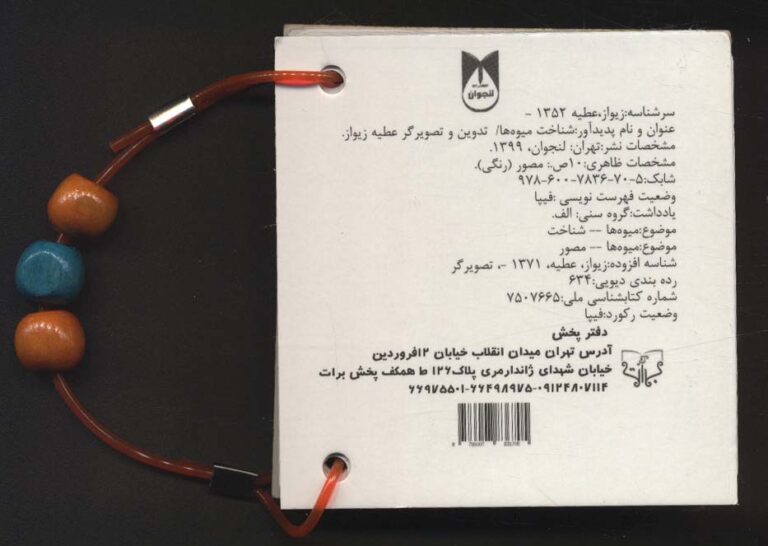 لنجوان
سرشناسه:زیواز،عطیه ۱۳۵۲ -
عنوان و نام پدیدآور:شناخت میوه‌ها/ تدوین و تصویرگر عطیه زیواز.
مشخصات نشر:تهران: لنجوان، ۱۳۹۹.
مشخصات ظاهری:۱۰ص.: مصور (رنگی).
شابک:۵-۷۰-۷۸۳۶-۶۰۰-۹۷۸
وضعیت فهرست نویسی :فیپا
یادداشت:گروه سنی: الف.
موضوع:میوه‌ها -- شناخت
موضوع:میوه‌ها -- مصور
شناسه افزوده:زیواز، عطیه، ۱۳۷۱ -، تصویرگر
رده بندی دیویی:۶۳۴
شماره کتابشناسی ملی:۷۵۰۷۶۶۵
وضعیت رکورد:فیپا
دفتر پخش
آدرس تهران میدان انقلاب خیابان ۱۲فروردین
خیابان شهدای ژاندارمری پلاک۱۲۶ ط همکف پخش برات
۶۶۹۷۵۵۰۱-۶۶۴۹۸۹۷۵-۰۹۱۲۴۸۰۷۱۱۴